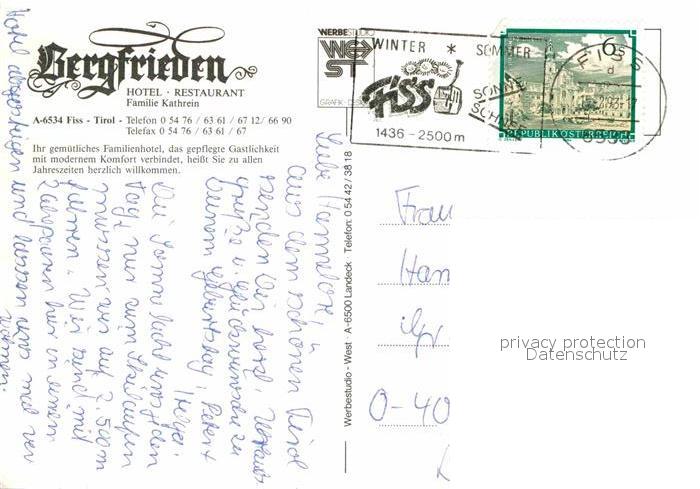 Bergfrieden
HOTEL · RESTAURANT
Familie Kathrein
A-6534 Fiss - Tirol - Telefon 0 54 76 / 63 61 / 67 12 / 66 90
Telefax 0 54 76 / 63 61 / 67
Ihr gemütliches Familienhotel, das gepflegte Gastlichkeit
mit modernem Komfort verbindet, heißt Sie zu allen
Jahreszeiten herzlich willkommen.
WERBESTUDIO
WEST
GRAFIK-DESIGN
WINTER * SOMMER
FISS
SONNE
SCHNEE
1436 - 2500 m
6
REPUBLIK ÖSTERREICH
FISS
d
Liebe Hannelore,
aus dem schönen Tirol
senden wir herzl. Urlaubs-
grüße u. Glückwünsche zu
Deinem Geburtstag,
Die Sonne lacht uns jeden
Tag, nur zum Skilaufen
müssen wir auf 2.500m
fahren. Wir sind mit
hier in einem
Hotel abgestiegen und lassen uns mal ver
wöhnen.
Werbestudio - West · A-6500 Landeck · Telefon: 0 54 42 / 38 18
Frau
Han
O-40
privacy protection
Datenschutz